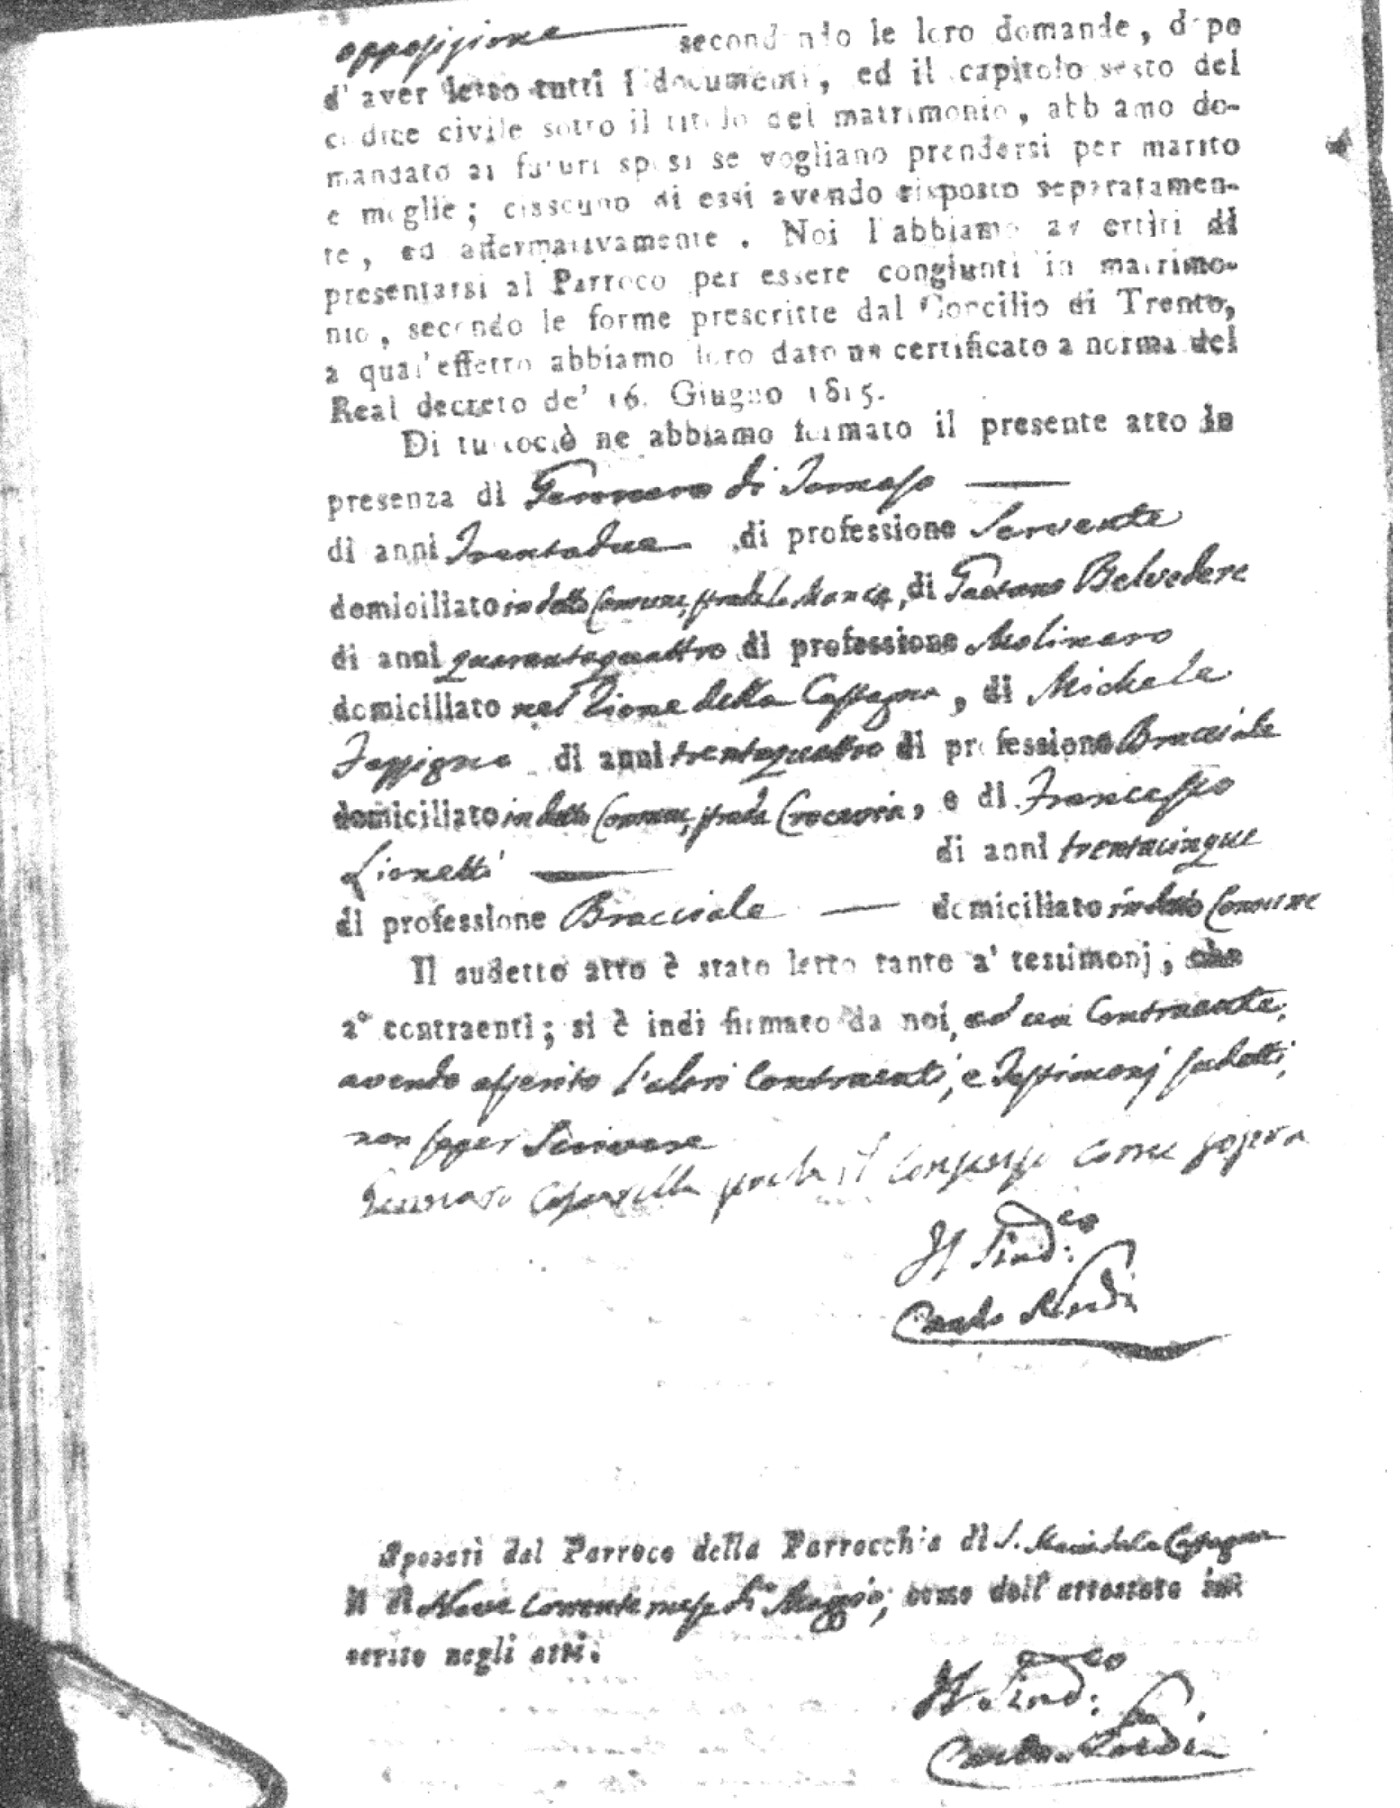 opposizione secondando le loro domande, dopo
d'aver letto tutti i documenti, ed il capitolo sesto del
codice civile sotto il titolo del matrimonio, abbiamo do-
mandato ai futuri sposi se vogliano prendersi per marito
e moglie; ciascuno di essi avendo risposto separatamen-
te, ed affermativamente. Noi l'abbiamo avvertiti di
presentarsi al Parroco per essere congiunti in matrimo-
nio, secondo le forme prescritte dal Concilio di Trento,
a qual'effetto abbiamo loro dato un certificato a norma del
Real decreto de' 16. Giugno 1815.
Di tuttociò ne abbiamo formato il presente atto in
presenza di Gennaro di Tomaso
di anni Trentadue di professione Servente
domiciliato in detto Comune, strada la Manca, di Gaetano Belvedere
di anni quarantaquattro di professione Molinaro
domiciliato nel Rione della Castagna, di Michele
di anni trentaquattro di professione Bracciale
domiciliato in detto Comune, strada Crocevia, e di Francesco
Lionetti di anni trentacinque
di professione Bracciale domiciliato in detto Comune
Il sudetto atto è stato letto tanto a' testimonj, che
a' contraenti; si è indi firmato da noi, ed un Contraente,
avendo asserito l'altri Contraenti, e Testimonj sudetti,
non saper Scrivere
Gennaro come sopra
Il Sind.co
Carlo
Sposati dal Parroco della Parrocchia di S. Maria della Castagna
lì Nove Corrente mese di Maggio, come dall'attestato in-
serito negli atti.
Il Sind.co
Carlo